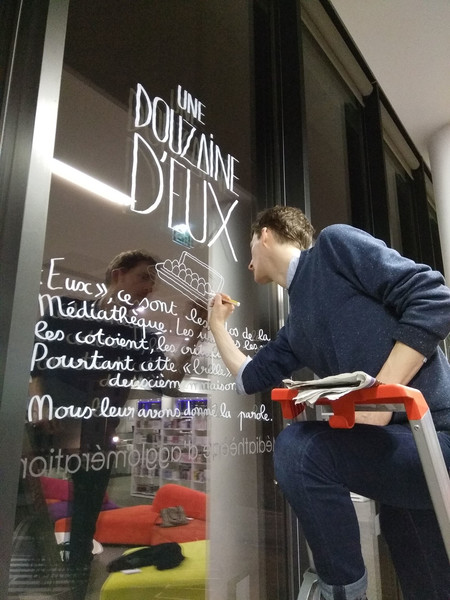 UNE
DOUZAINE
D'EUX
"Eux", ce sont les de la
Médiathèque. Les
les cotoient, les
Pourtant cette
deuxième maison
Nous leur avons donné la parole.
médiathèque d'agglomération